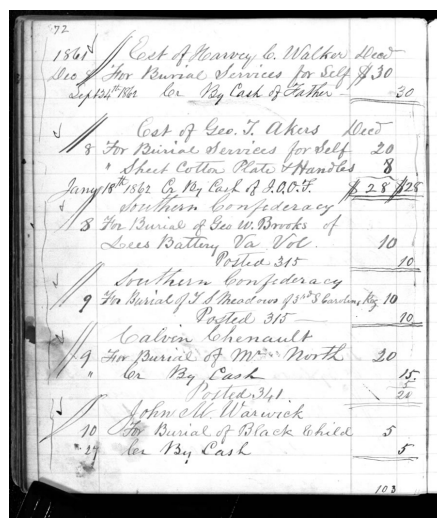 72
1861 Est of Harvey C. Walker Decd
Dec 8 For Burial Services for Self $30
Sept 24th 1862 Cr By Cash of Father 30
Est of Geo. T. Akers Decd
8 For Burial Services for Self 20
" Sheet Cotton Plate & Handles 8
Jany 18th 1862 Cr By Cash of I.O.O.F. $28 $28
Southern Confederacy
8 For Burial of Geo W. Brooks of
Lees Battery Va Vol. 10
Posted 315 10
Southern Confederacy
9 For Burial of T S Meadows of 3rd S Carolina Reg 10
Posted 315 10
Calvin Chenault
9 For Burial of Mrs North 20
" Cr By Cash 15
5
Posted 341 20
John M. Warwick
10 For Burial of Black Child 5
24 Cr By Cash 5
103